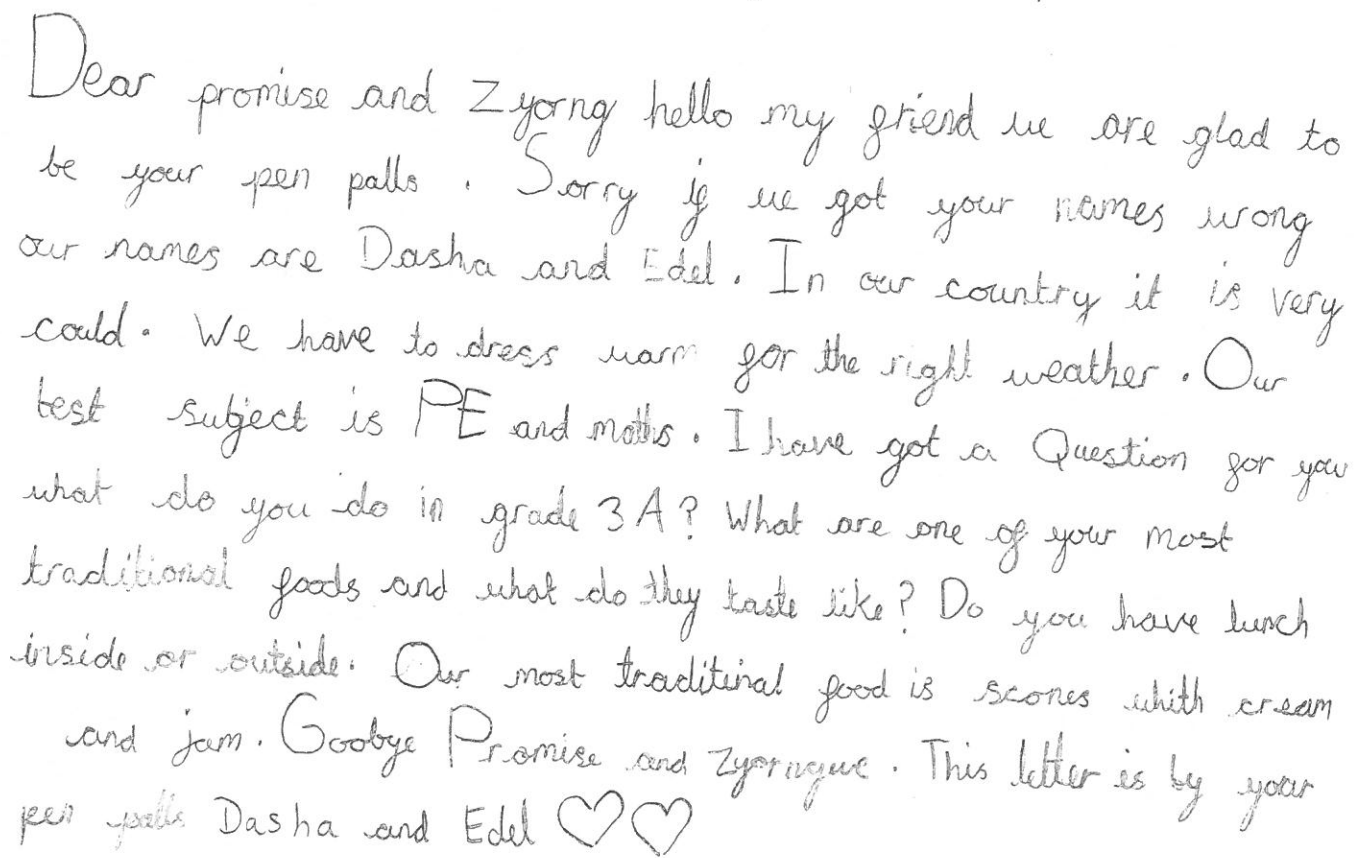 Dear promise and Zyorng hello my friend we are glad to
be your pen palls. Sorry if we got your names wrong
our names are Dasha and Edel. In our country it is very
could. We have to dress warm for the right weather. Our
best subject is PE and maths. I have got a Question for you
what do you do in grade 3A? What are one of your most
traditional foods and what do they taste like? Do you have lunch
inside or outside. Our most traditinal food is scones whith cream
and jam. Goobye Promise and Zyorngwe. This letter is by your
pen palls Dasha and Edel ♡♡